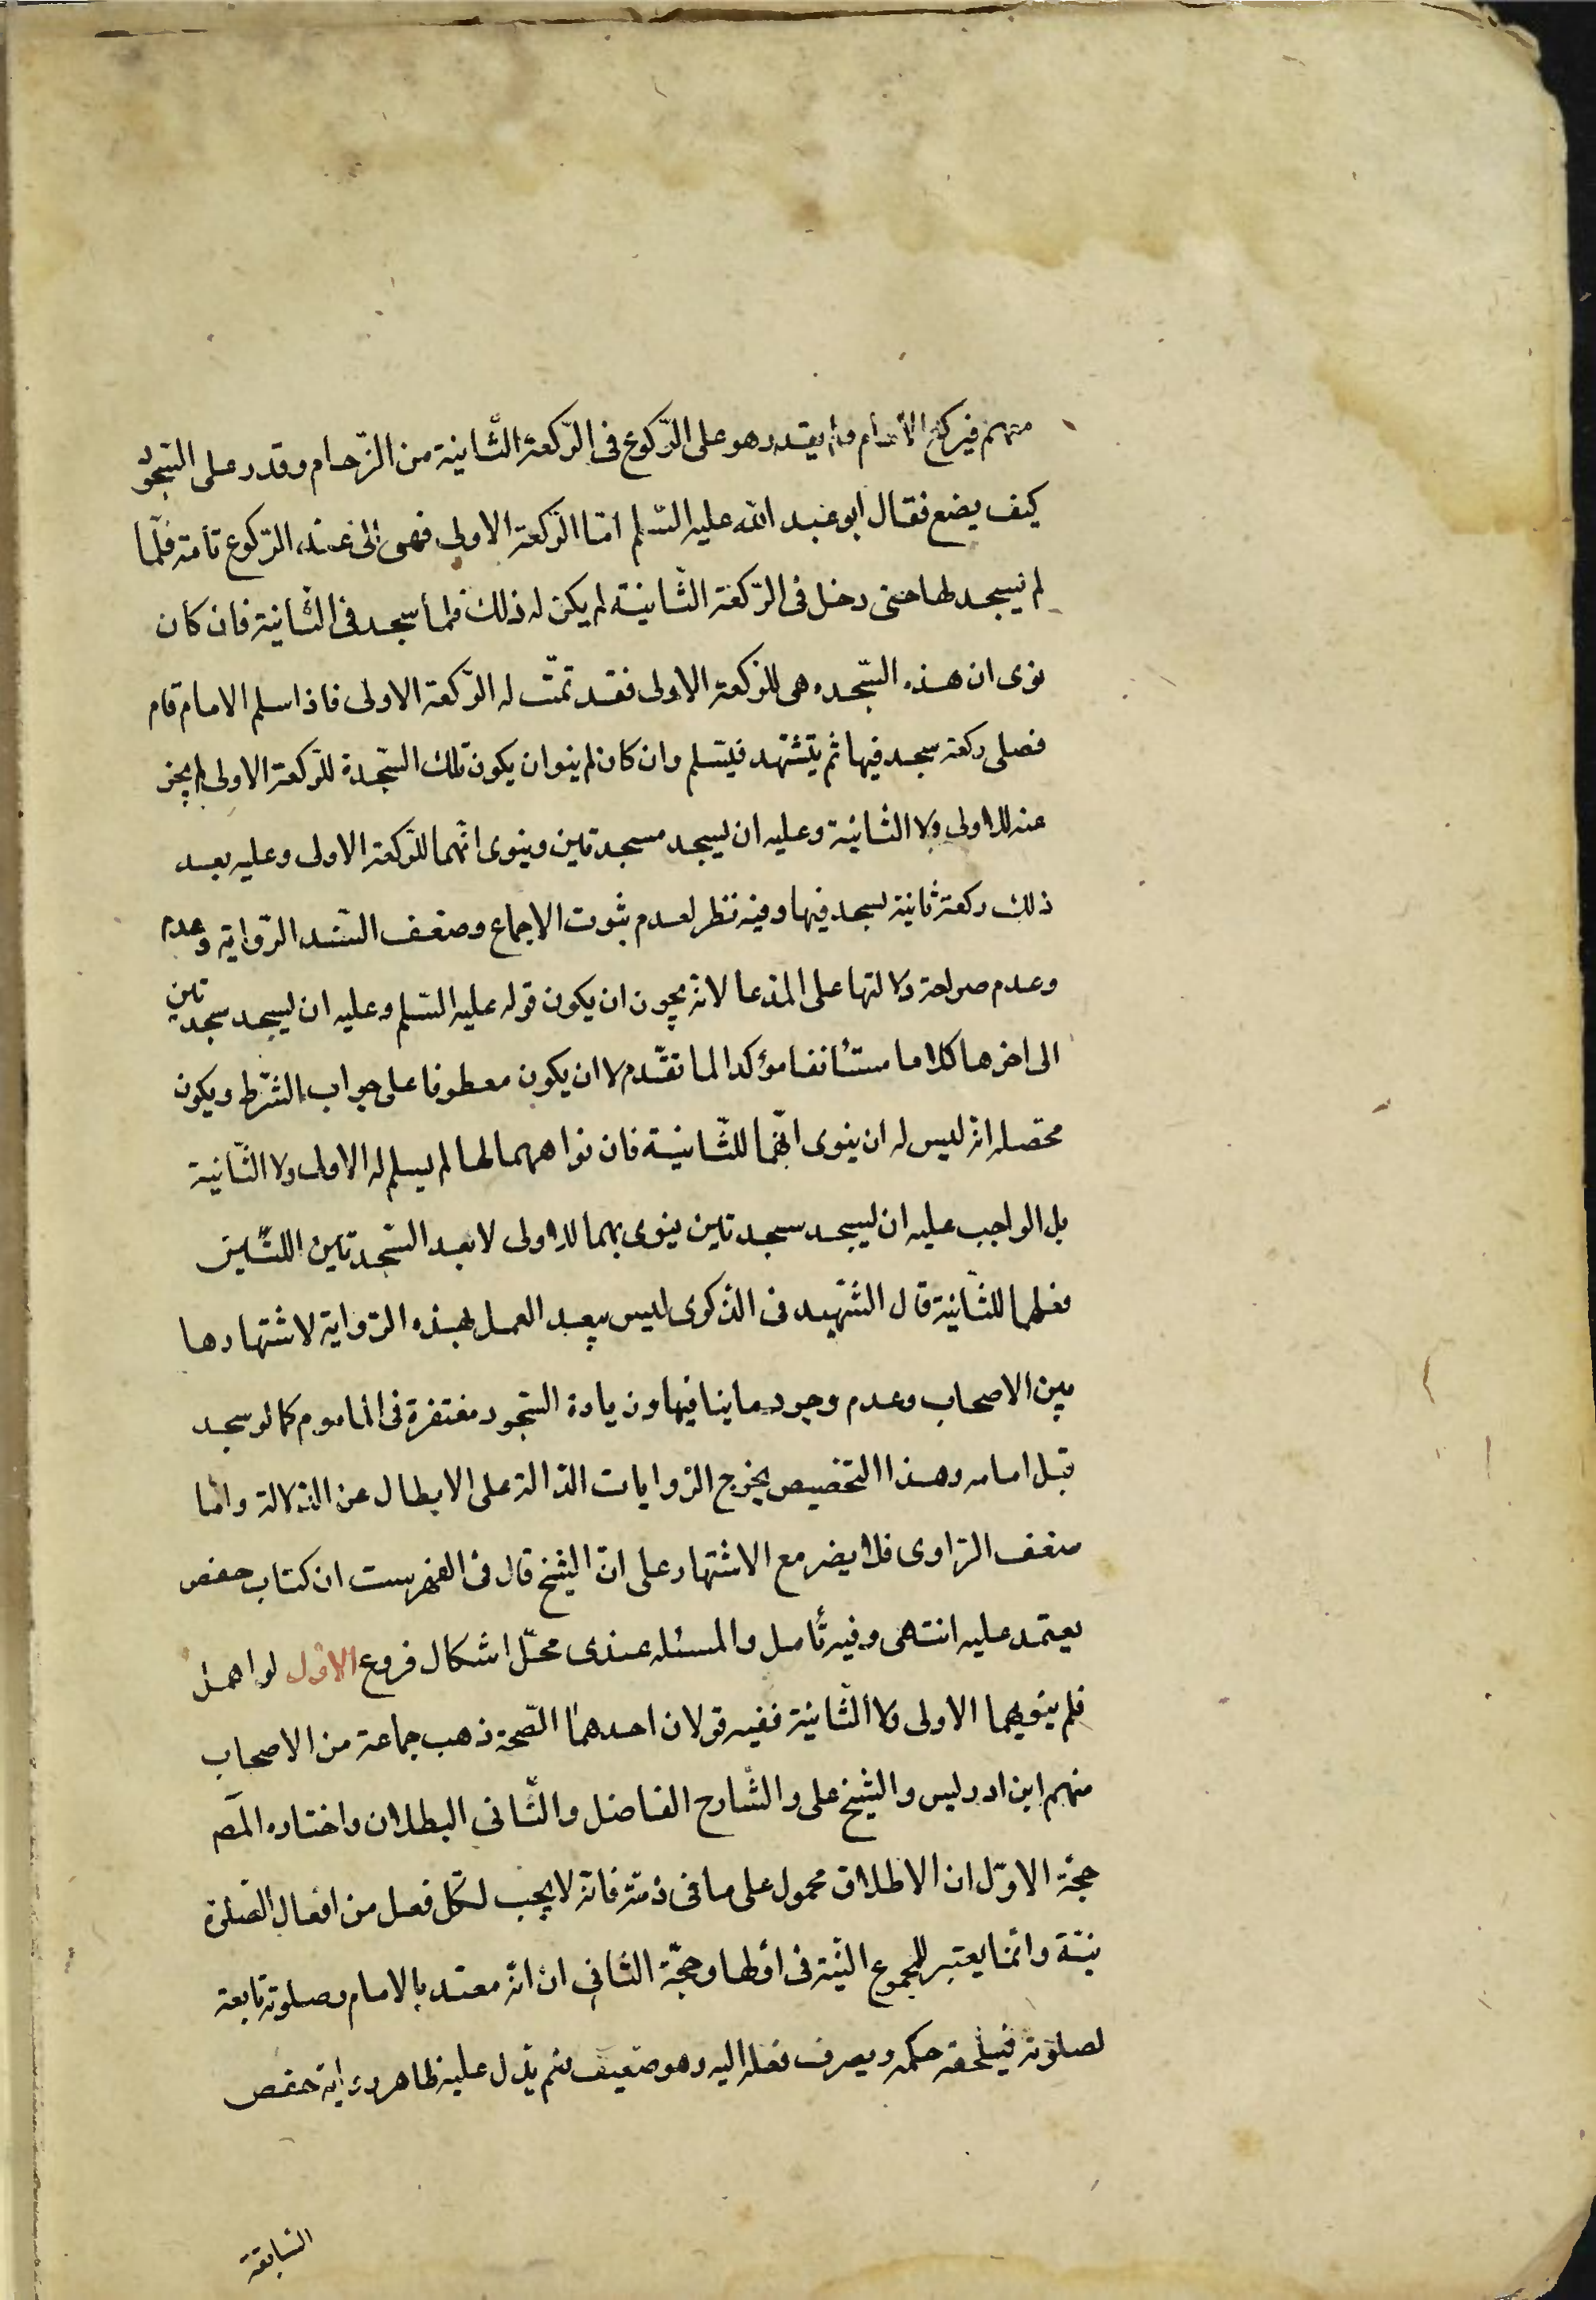 منهم فيركع الامام ولم يقدر هو على الرّكوع فى الرّكعة الثّانية من الزّحام وقدر على السّجود
كيف يصنع فقال ابو عبد الله عليه السّلم امّا الرّكعة الاولى فهى الى عند الركوع تامّة فلمّا
لم يسجد لها حتى دخل فى الرّكعة الثّانية لم يكن له ذلك فلمّا سجد فى الثّانية فان كان
نوى ان هذه السّجده هى للرّكعة الاولى فقد تمّت له الرّكعة الاولى فاذا سلم الامام قام
فصلى ركعة سجد فيها ثم يتشهد فيسلم وان كان لم ينو ان يكون تلك السّجدة للرّكعة الاولى لم يجز
عنه للاولى ولا الثانية وعليه ان يسجد سجدتين وينوى انّهما للرّكعة الاولى وعليه بعد
ذلك ركعة ثانية يسجد فيها وفيه نظر لعدم ثبوت الاجماع وضعف السّند الرّواية وعدم
وعدم صراحة دلالتها على المدعا لانه يجوز ان يكون قوله عليه السّلم وعليه ان يسجد سجدتين
الى اخرها كلاما مستأنفا مؤكدا لما تقدّم لا ان يكون معطوفا على جواب الشّرط ويكون
محصّله انّه ليس له ان ينوى انّهما للثّانية فان نواهما لها لم يسلم له الاولى ولا الثّانية
بل الواجب عليه ان يسجد سجدتين ينوى بهما للاولى لا بعد السّجدتين اللتين
فعلهما للثّانية قال الشّهيد فى الذكرى ليس ببعيد العمل بهذه الرّواية لاشتهارها
بين الاصحاب وعدم وجود ما ينافيها وزيادة السّجود مغتفرة فى الماموم كما لو سجد
قبل امامه وهذا التخصيص يخرج الرّوايات الدّالة على الابطال عن الدّلالة وامّا
ضعف الرّاوى فلا يضر مع الاشتهار على انّ الشيخ قال فى الفهرست ان كتاب حفص
يعتمد عليه انتهى وفيه تأمل والمسئله عندى محلّ اشكال فروع الاوّل لو اهمل
فلم ينوبهما الاولى ولا الثّانية ففيه قولان احدهما الصّحة ذهب جماعة من الاصحاب
منهم ابن ادريس والشيخ على والشّارح الفاضل والثّانى البطلان واختاره المصّ
حجّة الاوّل ان الاطلاق محمول على ما فى ذمّته فانه لا يجب لكل فعل من افعال الصّلوة
نيّة وانّما يعتبر للمجموع النيّة فى اوّلها وحجّة الثانى ان انّه مقتد بالامام وصلوته تابعة
لصلوته فيلحقه حكمه ويصرف فعله اليه وهو ضعيف نعم يدل عليه ظاهر رواية حفص
السّابقة